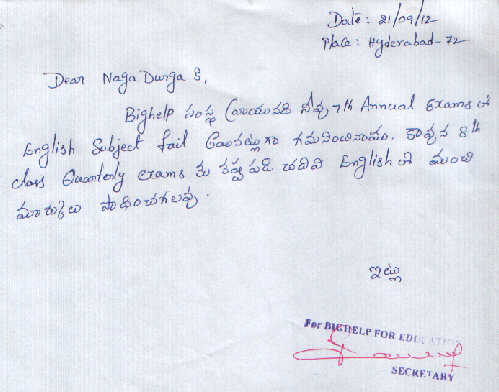 Date: 21/09/12
Place: Hyderabad-72
Dear Naga Durga S,
Bighelp సంస్థ నీవు 7th Annual Exams లో
English Subject fail గమనించినాము. కావున 8th
class Quarterly exams కు కష్టపడి చదివి English లో మంచి
మార్కులు సాధించగలవు.
ఇట్లు
For BIGHELP FOR EDUCATION
SECRETARY